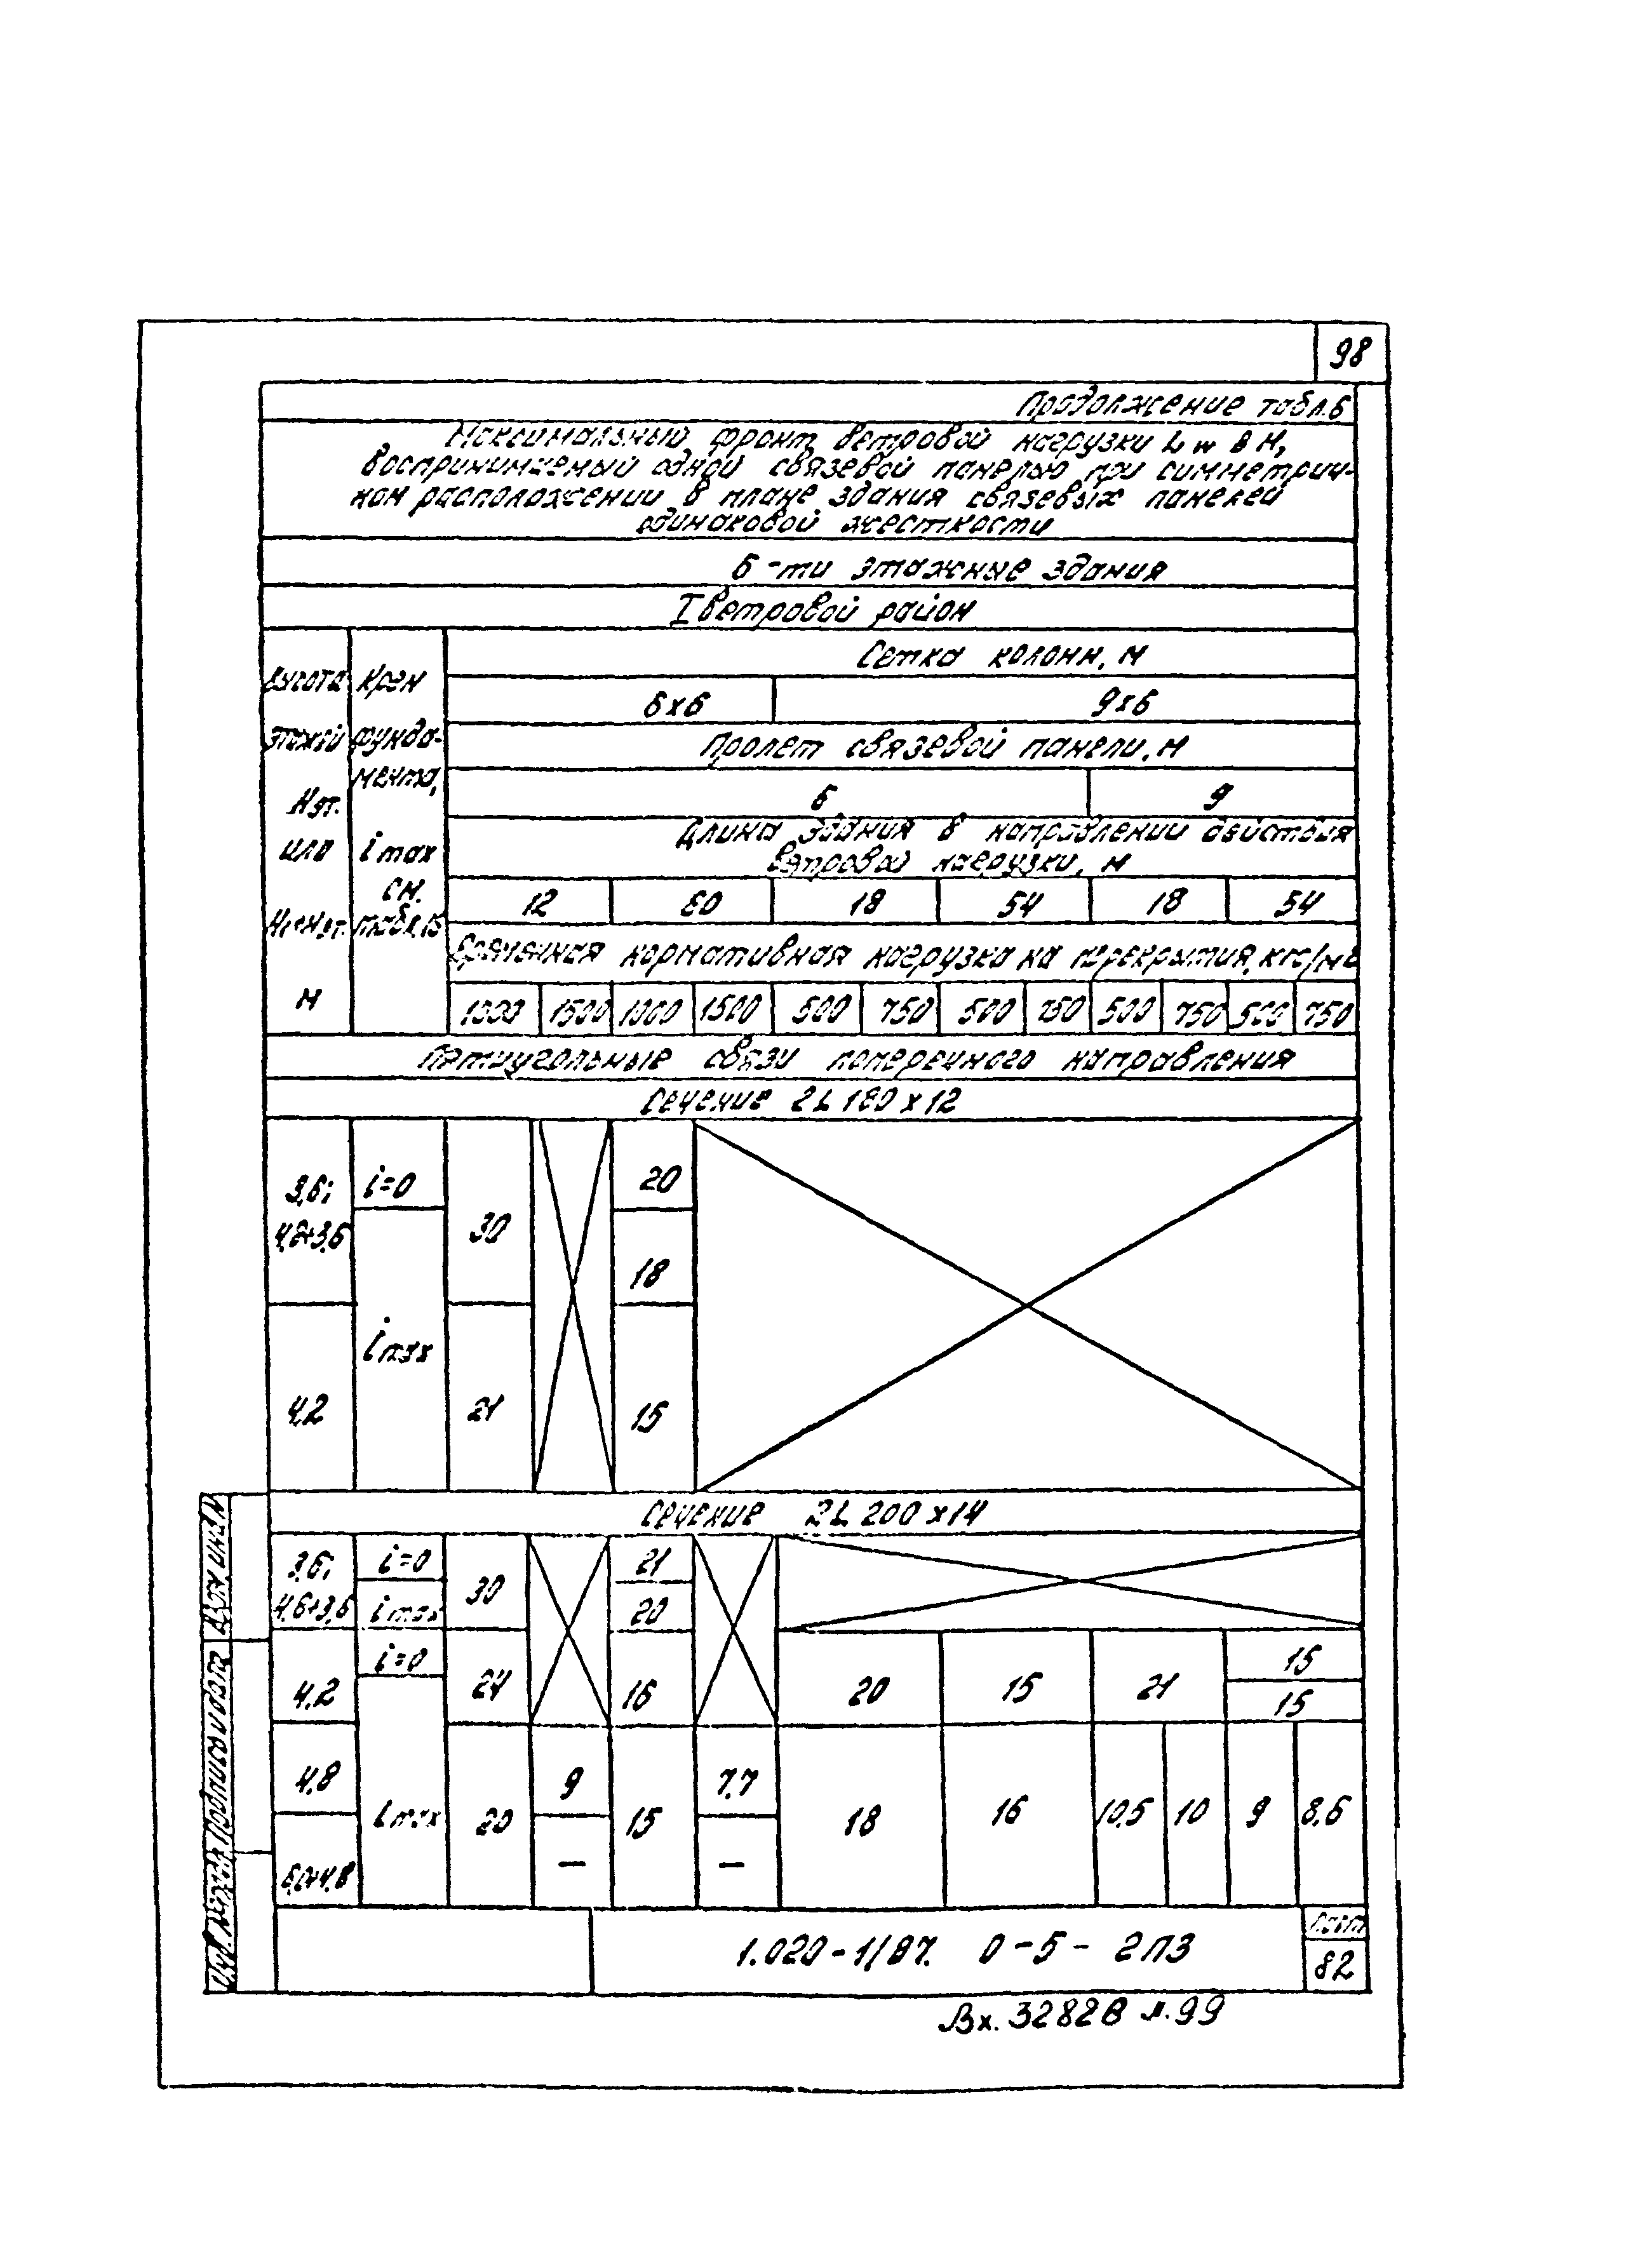 98
Продолжение табл.6
Максимальный фронт ветровой нагрузки Lw в м,
воспринимаемый одной связевой панелью при симметрич-
ном расположении в плане здания связевых панелей
одинаковой жесткости
6-ти этажные здания
I ветровой район
Высота этажей Нэт. или м
Крен фунда- мента, i max см. табл.15
Сетка колонн, м
6х6 9х6
Пролет связевой панели, м
6 9
Длина здания в направлении действия
ветровой нагрузки, м
12 60 18 54 18 54
нормативная нагрузка на перекрытия, кгс/м2
1000 1500 1000 1500 500 750 500 750 500 750 500 750
связи поперечного направления
Сечение 2L 180х12
3,6; i=0 30 20
4,8+3,6 18
i max
4,2 21 15
Сечение 2L 200х14
3,6; i=0 30 21
4,8+3,6 i max 20
4,2 i=0 24 16 20 15 21 15
15
4,8 i max 20 9 15 7,7 18 16 10,5 10 9 8,6
6,0+4,8 — —
Взам. инв. №
Подпись и дата
1.020-1/87. 0-5-2ПЗ
Лист
82
Вх. 32828 л.99